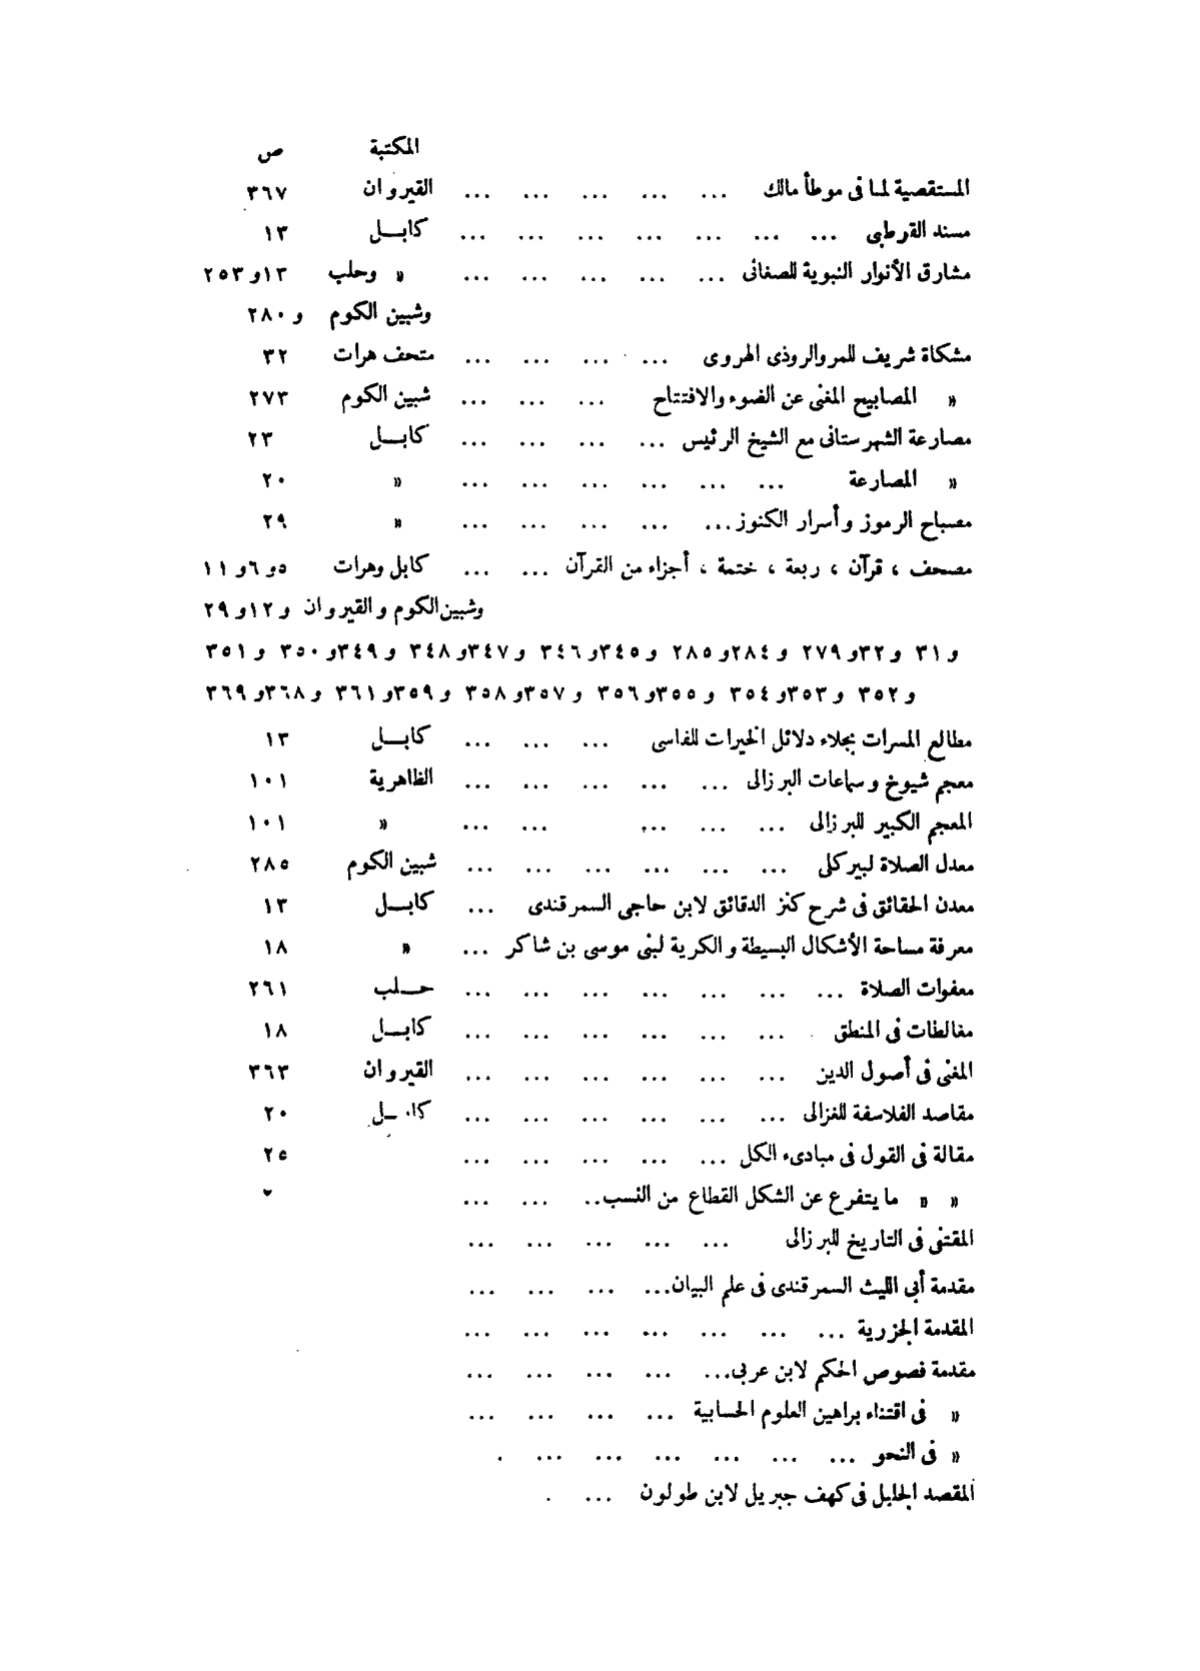 المكتبة ص
المستقصية لما فى موطأ مالك ... ... ... ... ... القيروان ٣٦٧
مسند القرطبى ... ... ... ... ... ... ... كابـــل ١٣
مشارق الأنوار النبوية للصغانى ... ... ... ... ... « وحلب ١٣و٢٥٣
وشبين الكوم و٢٨٠
مشكاة شريف للمروالروذى الهروى ... ... ... ... متحف هرات ٣٢
« المصابيح المغنى عن الضوء والافتتاح ... ... ... شبين الكوم ٢٧٣
مصارعة الشهرستانى مع الشيخ الرئيس ... ... ... ... كابـــل ٢٣
« المصارعة ... ... ... ... ... ... « ٢٠
مصباح الرموز وأسرار الكنوز ... ... ... ... ... « ٢٩
مصحف ، قرآن ، ربعة ، ختمة ، أجزاء من القرآن ... ... كابل وهرات ٥و٦و١١
وشبين الكوم والقيروان و١٢و٢٩
و٣١ و٣٢و٢٧٩ و٢٨٤و٢٨٥ و٣٤٥و٣٤٦ و٣٤٧و٣٤٨ و٣٤٩و٣٥٠ و٣٥١
و٣٥٢ و٣٥٣و٣٥٤ و٣٥٥و٣٥٦ و٣٥٧و٣٥٨ و٣٥٩و٣٦١ و٣٦٨و٣٦٩
مطالع المسرات بجلاء دلائل الخيرات للفاسى ... ... ... كابـــل ١٣
معجم شيوخ وسماعات البرزالى ... ... ... ... ... الظاهرية ١٠١
المعجم الكبير للبرزالى ... ... ... ... ... « ١٠١
معدل الصلاة لبيركلى ... ... ... ... ... ... شبين الكوم ٢٨٥
معدن الحقائق فى شرح كنز الدقائق لابن حاجى السمرقندى ... كابـــل ١٣
معرفة مساحة الأشكال البسيطة والكرية لبنى موسى بن شاكر ... « ١٨
معفوات الصلاة ... ... ... ... ... ... ... حـــلب ٢٦١
مغالطات فى المنطق ... ... ... ... ... ... كابـــل ١٨
المغنى فى أصول الدين ... ... ... ... ... ... القيروان ٣٦٣
مقاصد الفلاسفة للغزالى ... ... ... ... ... ... كابـــل ٢٠
مقالة فى القول فى مبادىء الكل ... ... ... ... ... ٢٥
« « ما يتفرع عن الشكل القطاع من النسب.. ... ...
المقتنى فى التاريخ للبرزالى ... ... ... ... ...
مقدمة أبى الليث السمرقندى فى علم البيان ... ... ... ...
المقدمة الجزرية ... ... ... ... ... ... ...
مقدمة فصوص الحكم لابن عربى ... ... ... ... ...
« فى اقتناء براهين العلوم الحسابية ... ... ... ...
« فى النحو ... ... ... ... ... ... .
المقصد الجليل فى كهف جبريل لابن طولون ... .